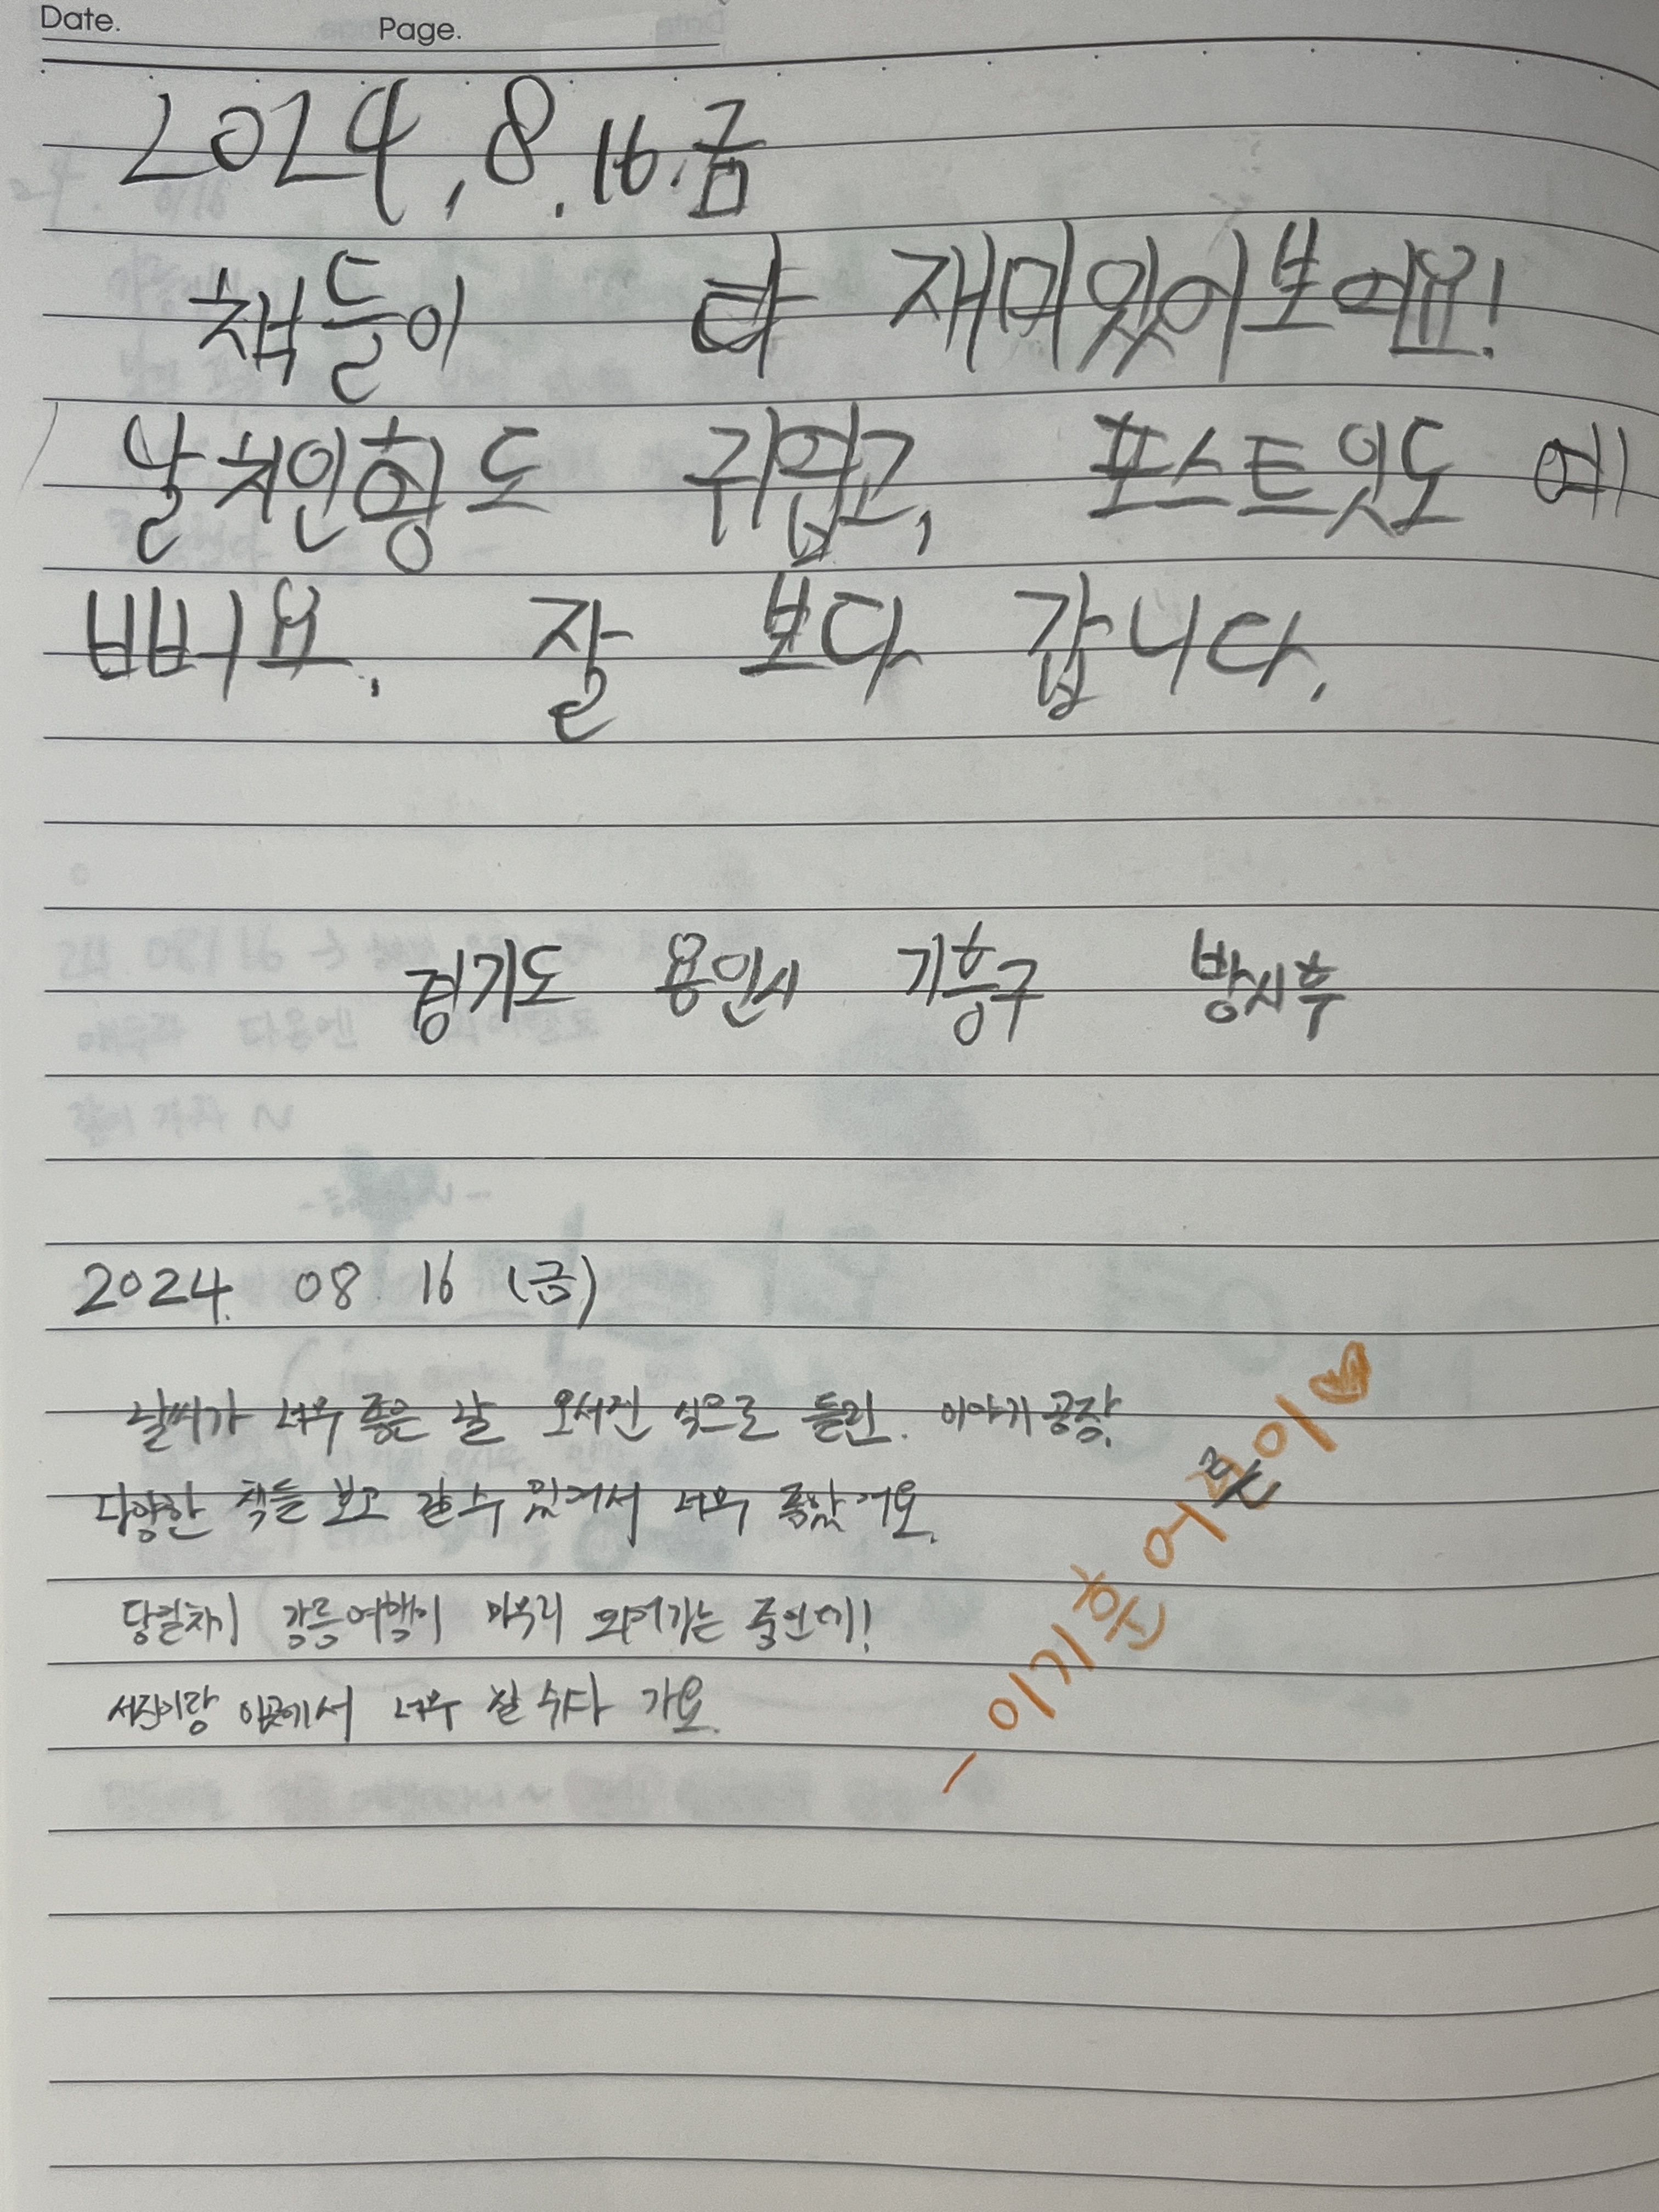 Date. Page.
2024, 8. 16. 금
책들이 다 재미있어보여요!
날치인형도 귀엽고, 포스트잇도 예
뻐요. 잘 보다 갑니다.
경기도 용인시 기흥구 방시후
2024. 08. 16 (금)
날씨가 너무 좋은 날 오서진 식으로 들린. 이야기 공장.
다양한 책들 보고 갈 수 있어서 너무 좋았어요.
당일치기 강릉여행이 마무리 되어가는 중인데!
서진이랑 이곳에서 너무 잘 쉬다 가요.
- 이기훈 어른이